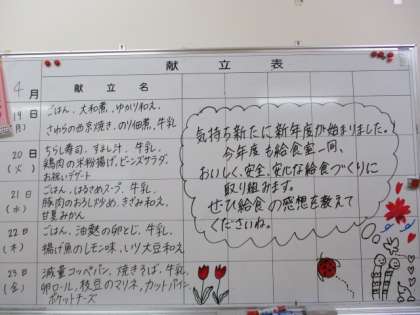 献立表
4月
献立名
19日(月)
ごはん、大和煮、ゆかり和え、
さわらの西京焼き、のり佃煮、牛乳
20日(火)
ちらし寿司、すまし汁、牛乳、
鶏肉の米粉揚げ、ビーンズサラダ、
お祝いデザート
21日(水)
ごはん、はるさめスープ、牛乳、
豚肉のおろし炒め、きざみ和え、
甘夏みかん
22日(木)
ごはん、油麩の卵とじ、牛乳、
揚げ魚のレモン味、いり大豆和え
23日(金)
減量コッペパン、焼きそば、牛乳、
卵ロール、枝豆のマリネ、カットパイン、
ポケットチーズ
気持ち新たに新年度が始まりました。
今年度も給食室一同、
おいしく、安全、安心な給食づくりに
取り組みます。
ぜひ給食の感想を教えて
くださいね。